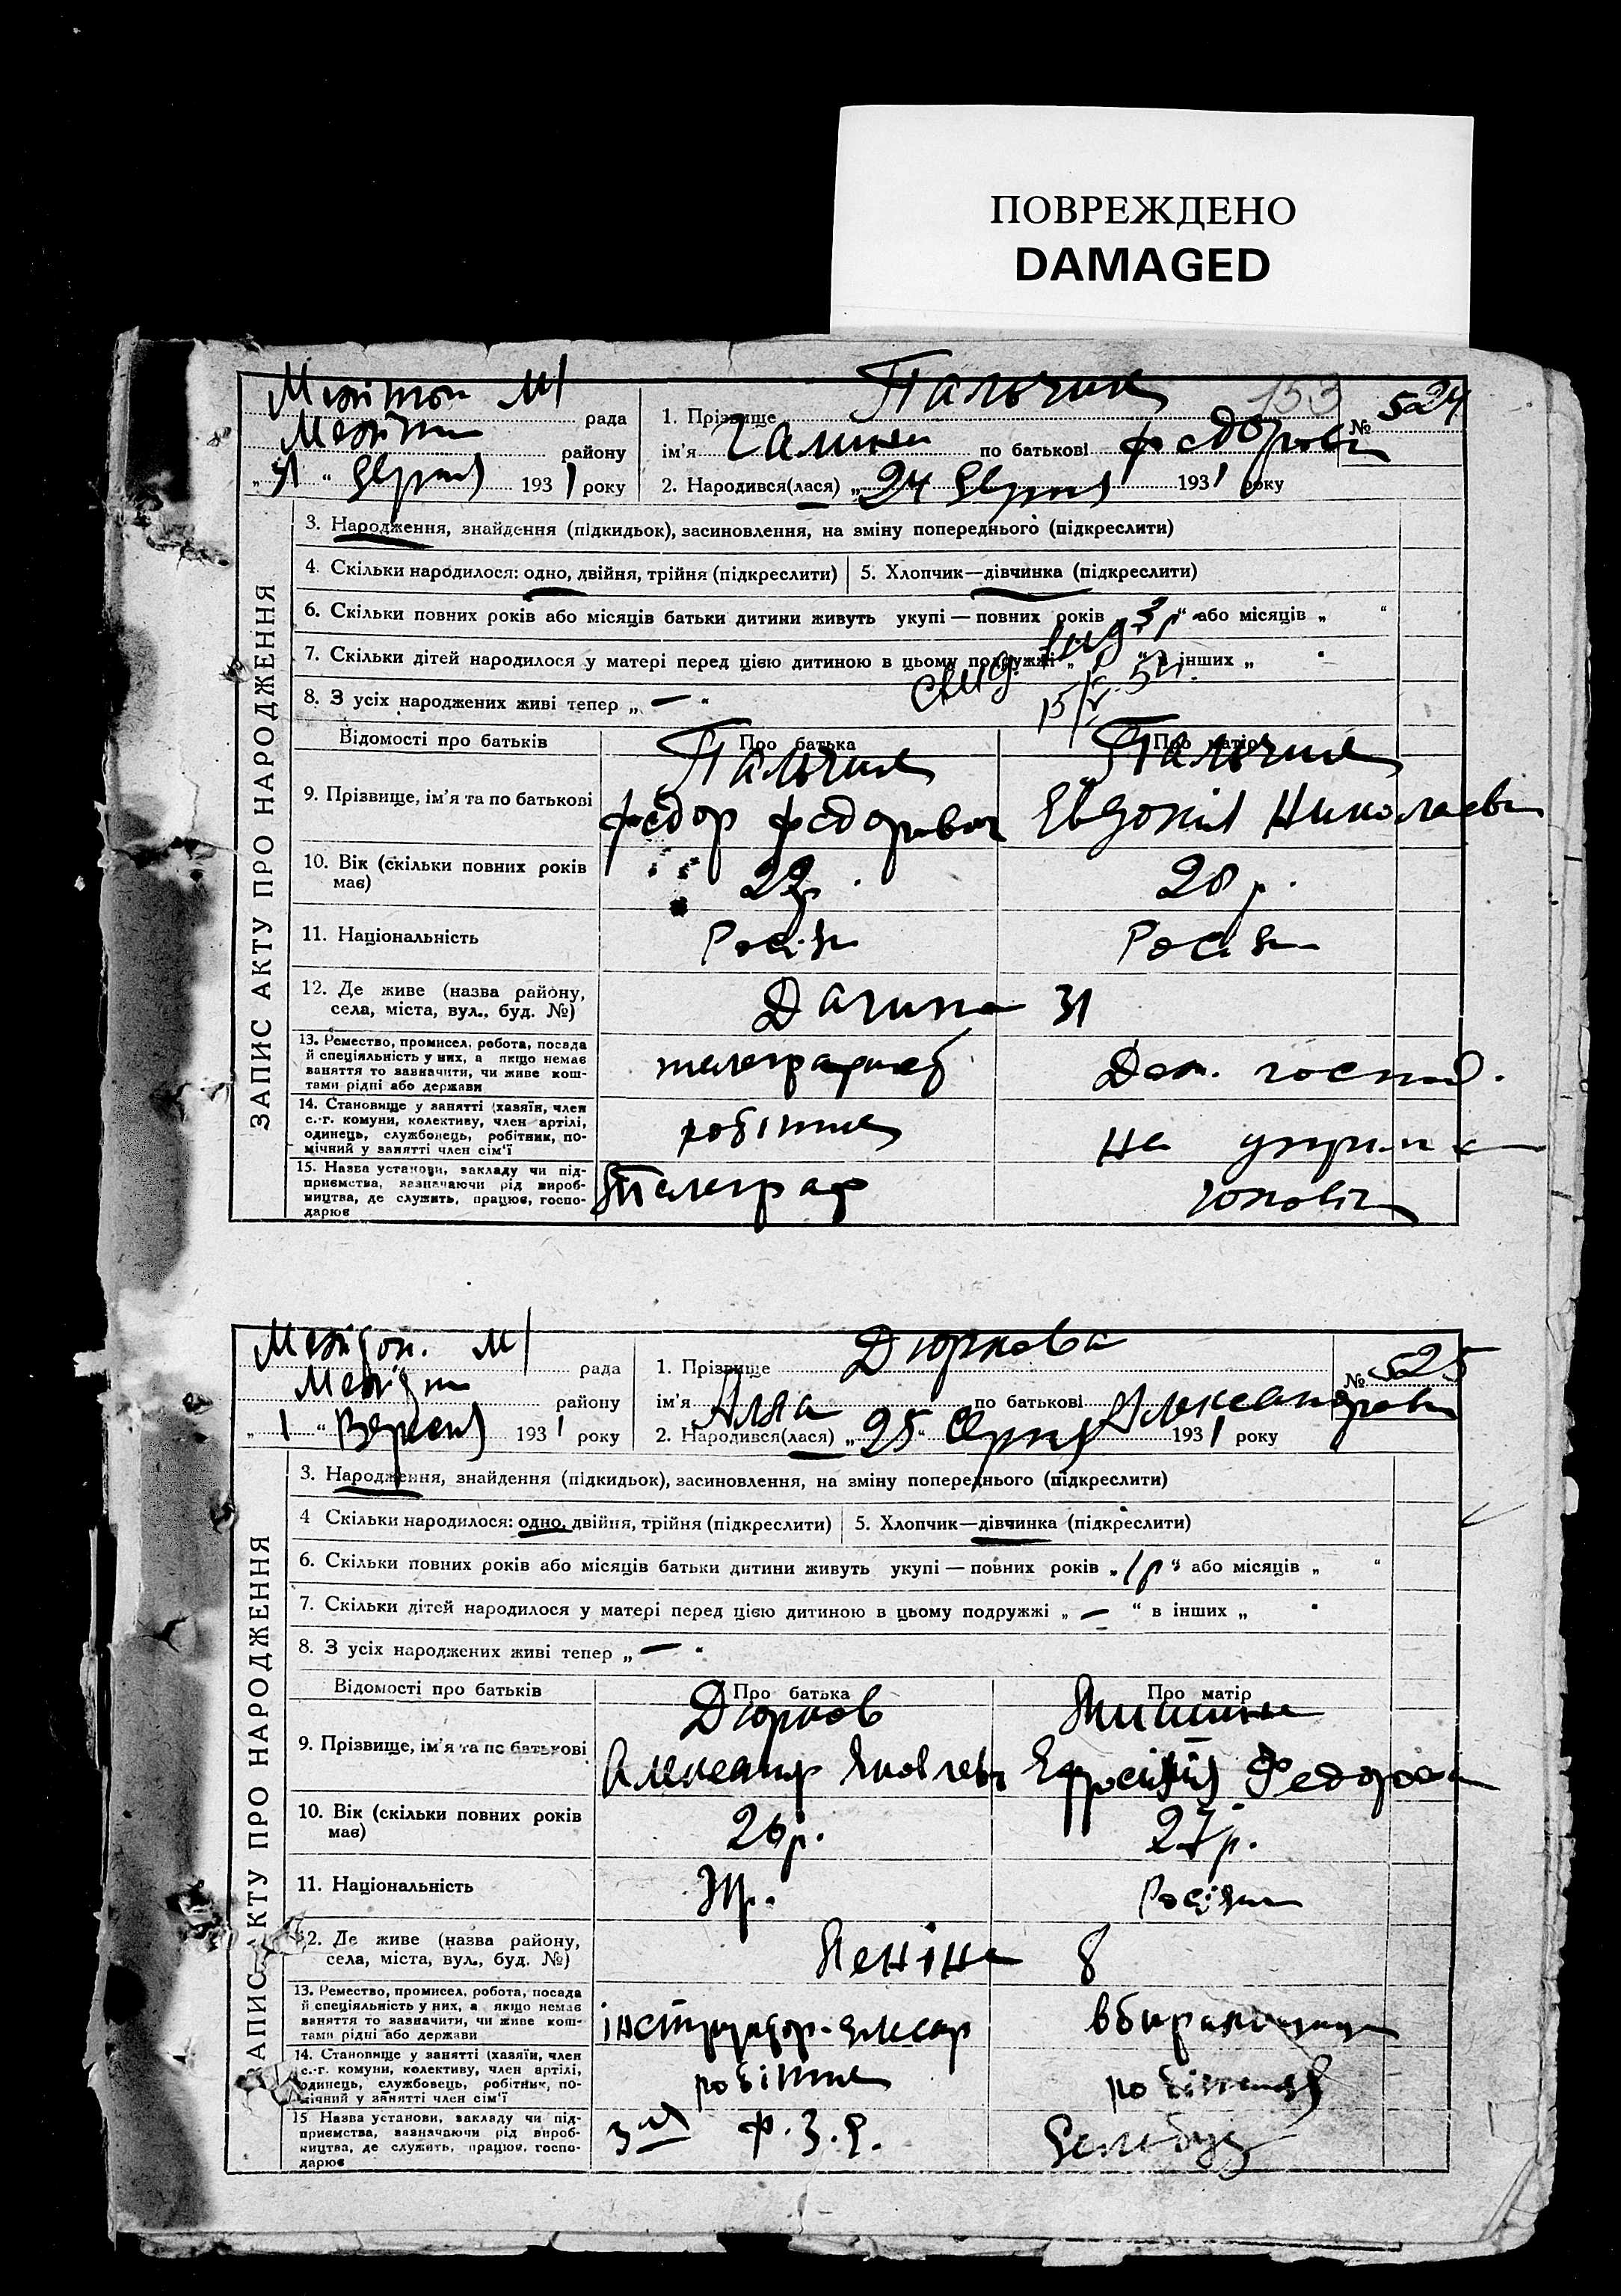 ПОВРЕЖДЕНО
DAMAGED
ЗАПИС АКТУ ПРО НАРОДЖЕННЯ
М/ рада
району
„31“ 1931 року
153
1. Прізвище Пальчик
№ 524
ім'я Галина по батькові Федоров
2. Народився(лася) „24 Серпня 1931 року
3. Народження, знайдення (підкидьок), засиновлення, на зміну попереднього (підкреслити)
4. Скільки народилося: одно, двійня, трійня (підкреслити)
5. Хлопчик—дівчинка (підкреслити)
6. Скільки повних років або місяців батьки дитини живуть укупі — повних років „3 р“ або місяців „ “
7. Скільки дітей народилося у матері перед цією дитиною в цьому подружжі „ “ в інших „
8. З усіх народжених живі тепер „ —
Відомості про батьків
Про батька
Про матір
9. Прізвище, ім'я та по батькові
Пальчик
Федор Федорович
Пальчик
Евдокія Николаевн
10. Вік (скільки повних років має)
28 р.
11. Національність
Росіян
Росіян
12. Де живе (назва району, села, міста, вул., буд. №)
31
13. Ремество, промисел, робота, посада
й спеціяльність у них, а якщо немає
заняття то зазначити, чи живе кош-
тами рідні або держави
Дом. господ.
14. Становище у занятті (хазяїн, член
с.-г. комуни, колективу, член артілі,
одинець, службовець, робітник, по-
мічний у занятті член сім'ї
робітник
На утрим
15. Назва установи, закладу чи під-
приємства, зазначаючи рід вироб-
ництва, де служить, працює, госпо-
дарює
Телеграф
ЗАПИС АКТУ ПРО НАРОДЖЕННЯ
М/ рада
району
„1“ Вересня 1931 року
1. Прізвище Дюркова
№ 525
ім'я Алла по батькові Александровн
2. Народився(лася) „25“ Серпня 1931 року
3. Народження, знайдення (підкидьок), засиновлення, на зміну попереднього (підкреслити)
4 Скільки народилося: одно, двійня, трійня (підкреслити)
5. Хлопчик—дівчинка (підкреслити)
6. Скільки повних років або місяців батьки дитини живуть укупі — повних років „1 р“ або місяців „ “
7. Скільки дітей народилося у матері перед цією дитиною в цьому подружжі „ — “ в інших „
8. З усіх народжених живі тепер „ —
Відомості про батьків
Про батька
Про матір
9. Прізвище, ім'я та по батькові
Дюрков
Александр Яковлевич
Ефросинія Федоровна
10. Вік (скільки повних років має)
26 р.
27 р.
11. Національність
Росіян
12. Де живе (назва району, села, міста, вул., буд. №)
Леніна 8
13. Ремество, промисел, робота, посада
й спеціяльність у них, а якщо немає
заняття то зазначити, чи живе кош-
тами рідні або держави
14. Становище у занятті (хазяїн, член
с.-г. комуни, колективу, член артілі,
одинець, службовець, робітник, по-
мічний у занятті член сім'ї
робітник
робітниця
15 Назва установи, закладу чи під-
приємства, зазначаючи рід вироб-
ництва, де служить, працює, госпо-
дарює